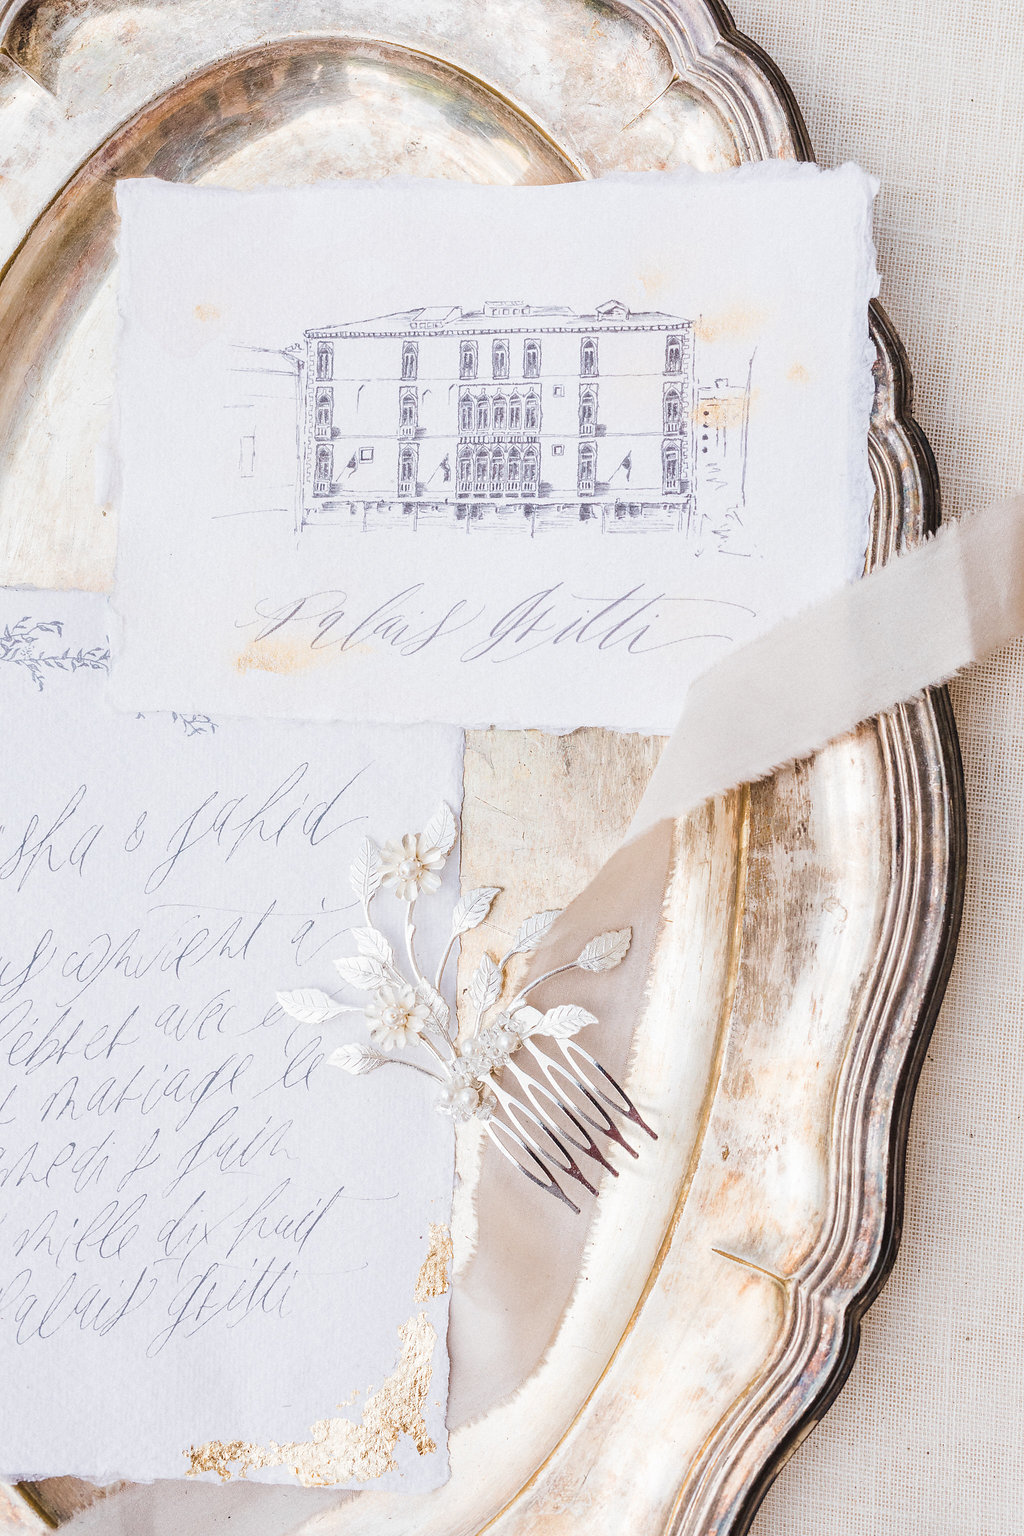 Palais Gritti
sha & Jahid
us convient à
lébrer avec
mariage le
medi juin
mille dix huit
Palais Gritti